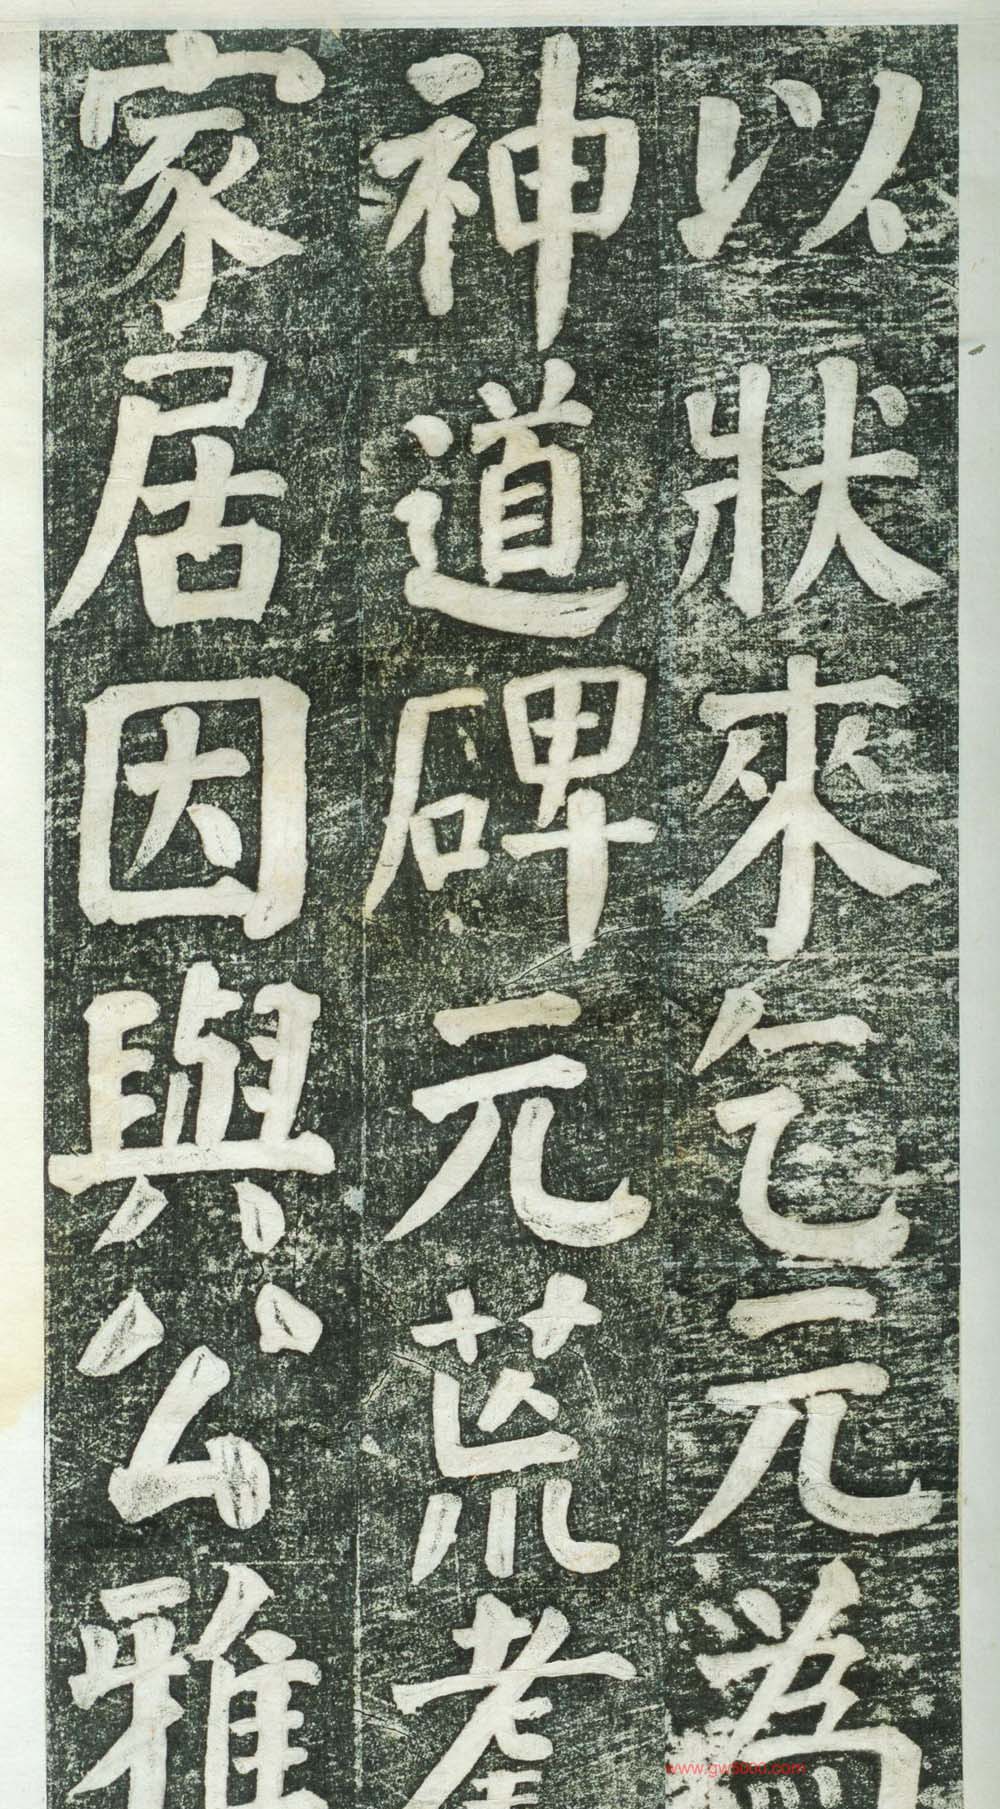 以狀來乞元為
神道碑元荒耄
家居因與公雅
www.gw5000.com